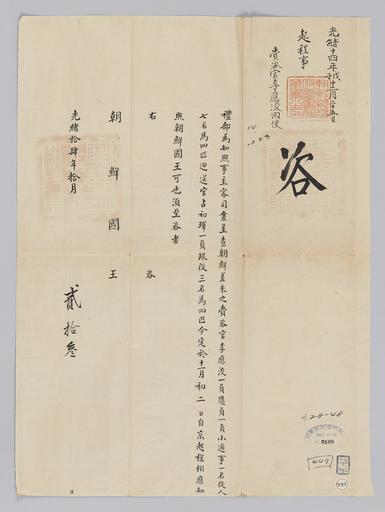 光緒十四年戊子十二月二十五日
起程事
賫咨官李應浚回便
14
10.23
咨
禮部為知照事主客司案呈查朝鮮差來之賫咨官李應浚一員隨員一員小通事一名從人
七名馬四匹迎送官占初琿一員跟役三名馬四匹今定於十一月初二日自京起程相應知
照朝鮮國王可也須至咨者
右咨
朝鮮國王
光緒拾肆年拾月
貳拾叁
28-48
447